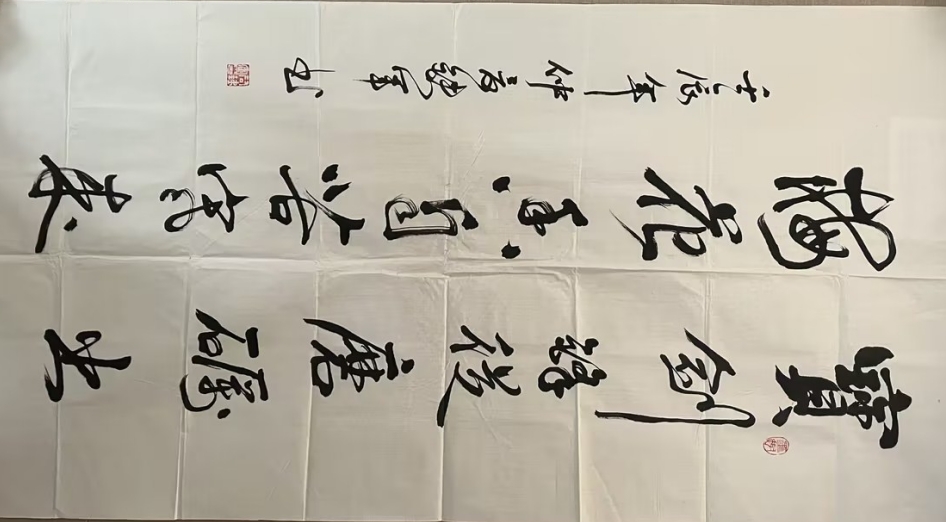 寶劍鋒從磨礪出
梅花香自苦寒來
年仲夏
書